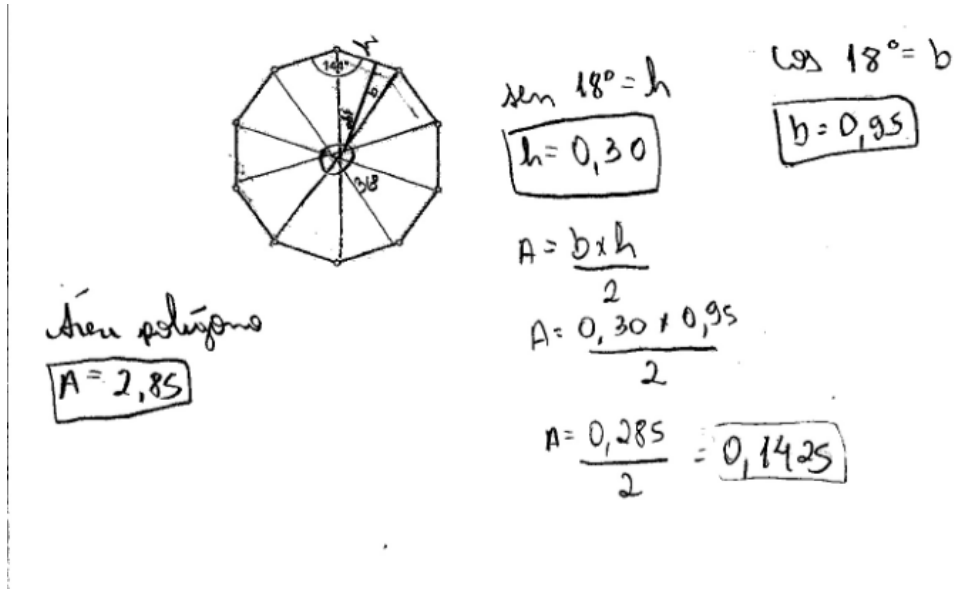 144°
h
b
36
sen 18° = h
h = 0,30
cos 18° = b
b = 0,95
A = b x h
2
A = 0,30 x 0,95
2
A = 0,285
2
= 0,1425
Área polígono
A = 2,85